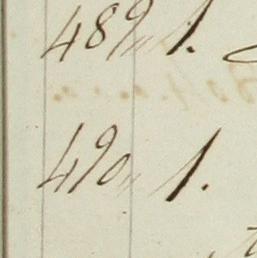 489 " 1.
490 " 1.